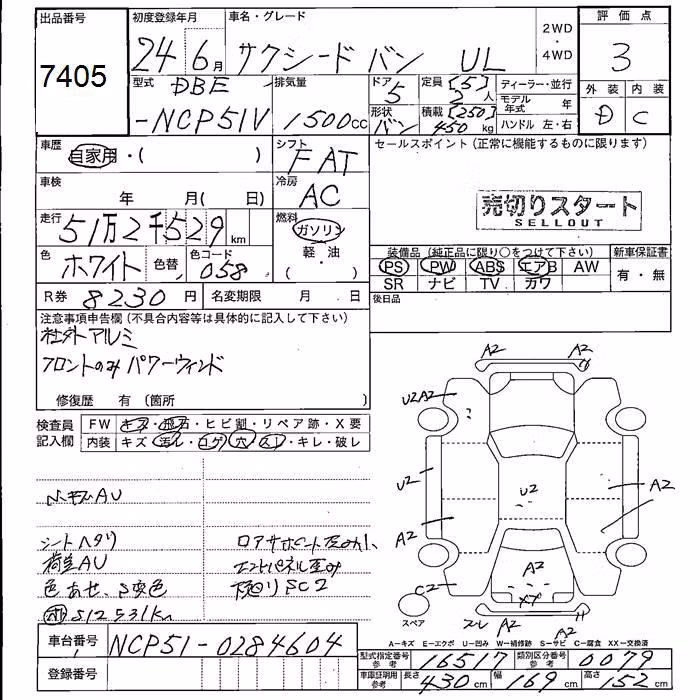 出品番号
7405
初度登録年月
24年6月
車名・グレード
サクシード バン UL
2WD・4WD
評価点
3
外装 内装
D C
型式
DBE
-NCP51V
排気量
1500cc
ドア
5
形状
バン
定員 [5] 2人
積載 [250] 450kg
ディーラー・並行
モデル年式 年
ハンドル 左・右
車歴
自家用・( )
シフト
FAT
セールスポイント (正常に機能するものに限ります)
売切りスタート
SELLOUT
車検 年 月( 日)
冷房
AC
走行
51万2千529km
燃料
ガソリン
軽・油
( )
色
ホワイト
色替
色コード
058
R券 8230円
名変期限 月 日
装備品 (純正品に限り○をつけて下さい)
PS PW ABS エアB AW
SR ナビ TV カワ
新車保証書
有・無
後日品
注意事項申告欄 (不具合内容等は具体的に記入して下さい)
社外アルミ
フロントのみパワーウィンド
修復歴 有 (箇所 )
検査員記入欄
FW キズ・飛石・ヒビ割・リペア跡・X要
内装 キズ・汚レ・コゲ・穴・スレ・キレ・破レ
シートヘタリ
荷室AU
色あせ、S変色
512531km
下廻りSC2
A2 A2
U2A2
U2
U2
A2
A2
A2
C2
A2
XX
スレ A2
スペア
A-キズ E-エクボ U-凹み W-補修跡 S-サビ C-腐食 XX-交換済
車台番号 NCP51-0284604
登録番号
型式指定番号 参考 16517
類別区分番号 参考 0079
車庫証明用 参考 長さ 430cm 幅 169cm 高さ 152cm